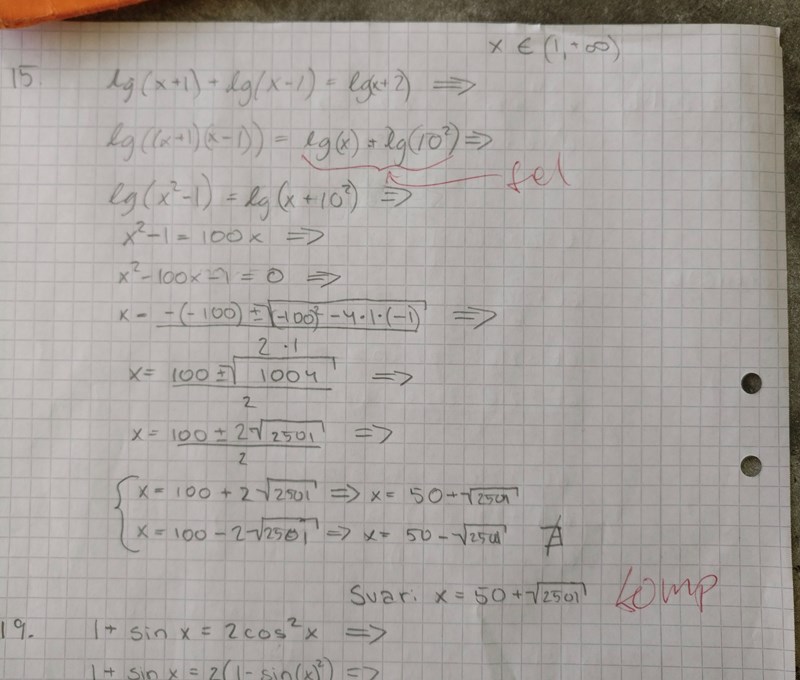 x ∈ (1, +∞)
15. lg(x+1) + lg(x-1) = lg(x+2) ⇒
lg((x+1)(x-1)) = lg(x) + lg(10²) ⇒
fel
lg(x²-1) = lg(x+10²) ⇒
x²-1 = 100x ⇒
x²-100x-1 = 0 ⇒
x = (-(-100) ± √(-100² - 4·1·(-1))) / (2·1) ⇒
x = (100 ± √(1004)) / 2 ⇒
x = (100 ± 2√2501) / 2 ⇒
x = 100 + 2√2501 ⇒ x = 50 + √2501
x = 100 - 2√2501 ⇒ x = 50 - √2501
Svar: x = 50 + √2501 komp
19. 1 + sin x = 2cos² x ⇒
1 + sin x = 2(1 - sin(x)²) ⇒